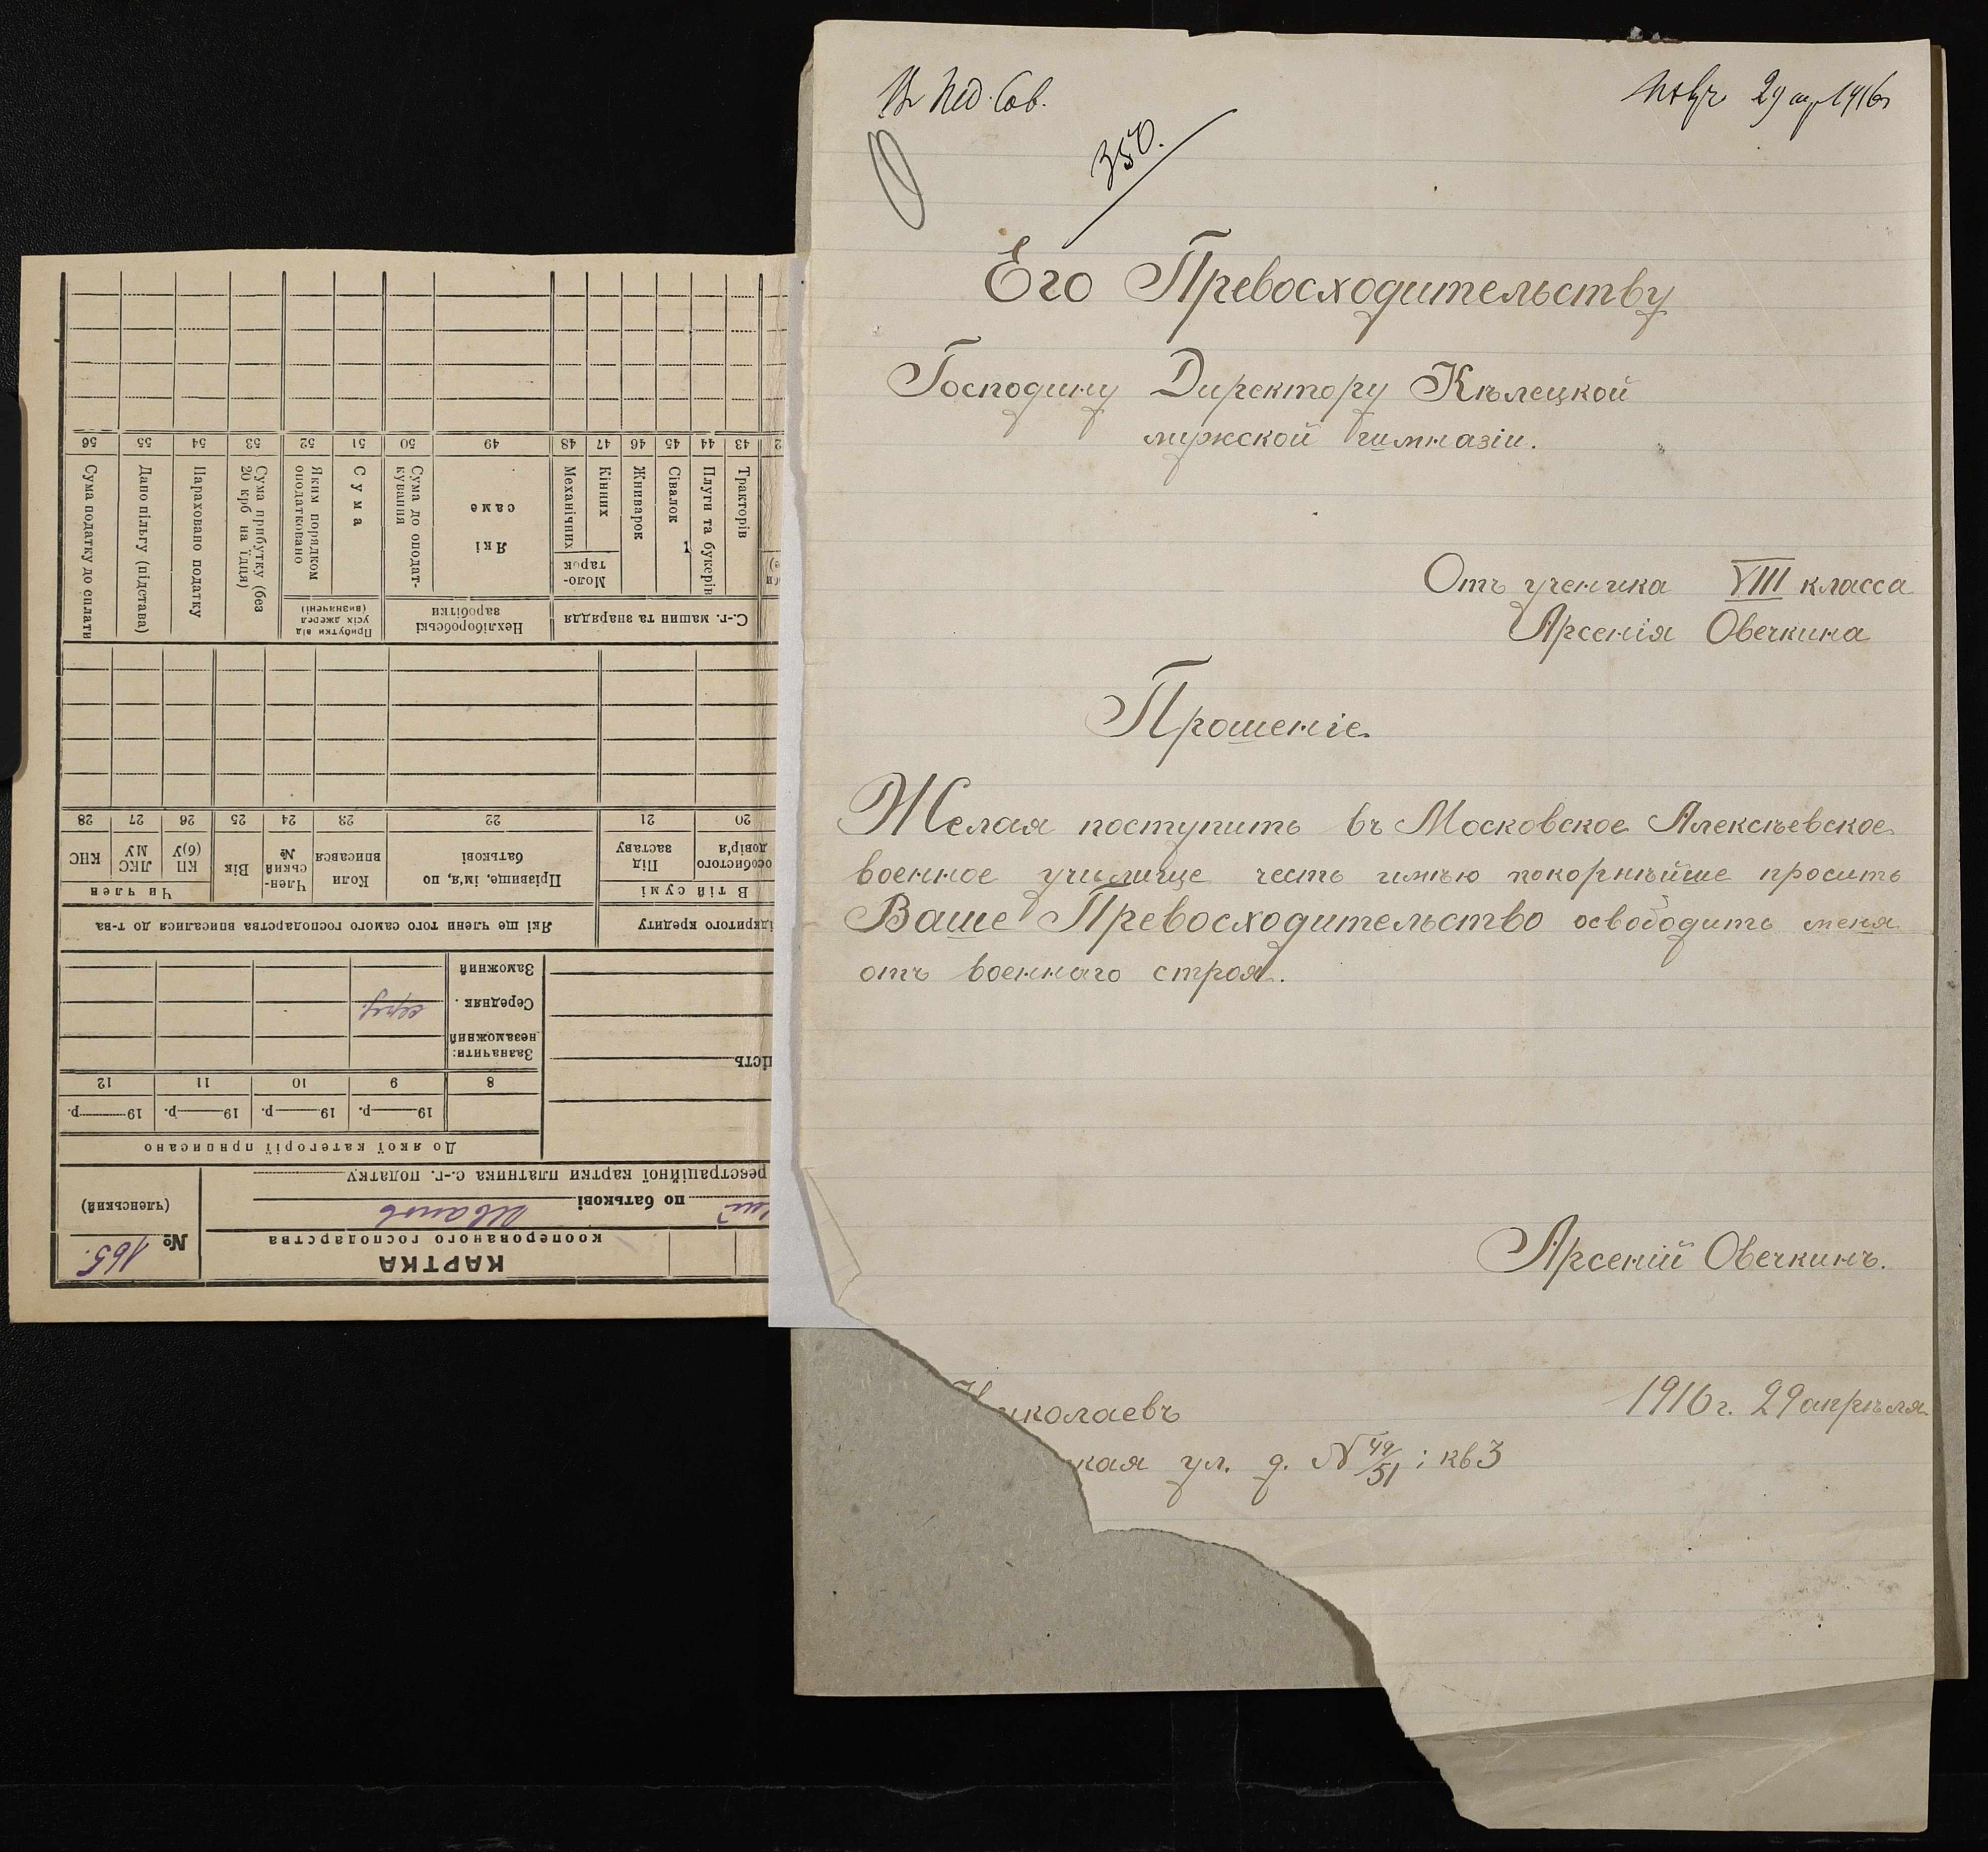 Въ Пед. Сов.
29 апр 1916
350.
Его Превосходительству
Господину Директору Кѣлецкой
мужской гимназіи.
Отъ ученика VIII класса
Арсенія Овечкина
Прошеніе.
Желая поступить въ Московское Алексѣевское
военное училище честь имѣю покорнѣйше просить
Ваше Превосходительство освободить меня
отъ военнаго строя.
Арсеній Овечкинъ.
Николаевъ 1916 г. 29 апрѣля.
кая ул. д. N 49/51; кв 3
КАРТКА
кооперованого господарства
№ 165.
(членський)
по батькові Иванов
реєстраційної картки платника с.-г. податку
До якої категорії приписано
19 р. 19 р. 19 р. 19 р.
8 9 10 11 12
Зазначити:
незаможний
Середняк серед.
Заможний
ість
ідкритого кредиту
Які ще члени того самого господарства вписалися до т-ва
В тій сумі
Чи член
особистого довір'я
Під заставу
Прізвище, ім'я, по батькові
Коли вписався
Член-ський №
Вік
КП (б)У
ЛКС МУ
КНС
20 21 22 23 24 25 26 27 28
С.-г. машин та знаряддя
Нехліборобські заробітки
Прибутки від усіх джерел (визначені)
Тракторів
Плуги та букерів
Сівалок
Жниварок
Моло-тарок
Кінних
Механічних
Які саме
Сума до оподат-кування
Сума
Яким порядком оподатковано
Сума прибутку (без 20 крб на їдця)
Нараховано податку
Дано пільгу (підстава)
Сума податку до сплати
43 44 45 46 47 48 49 50 51 52 53 54 55 56